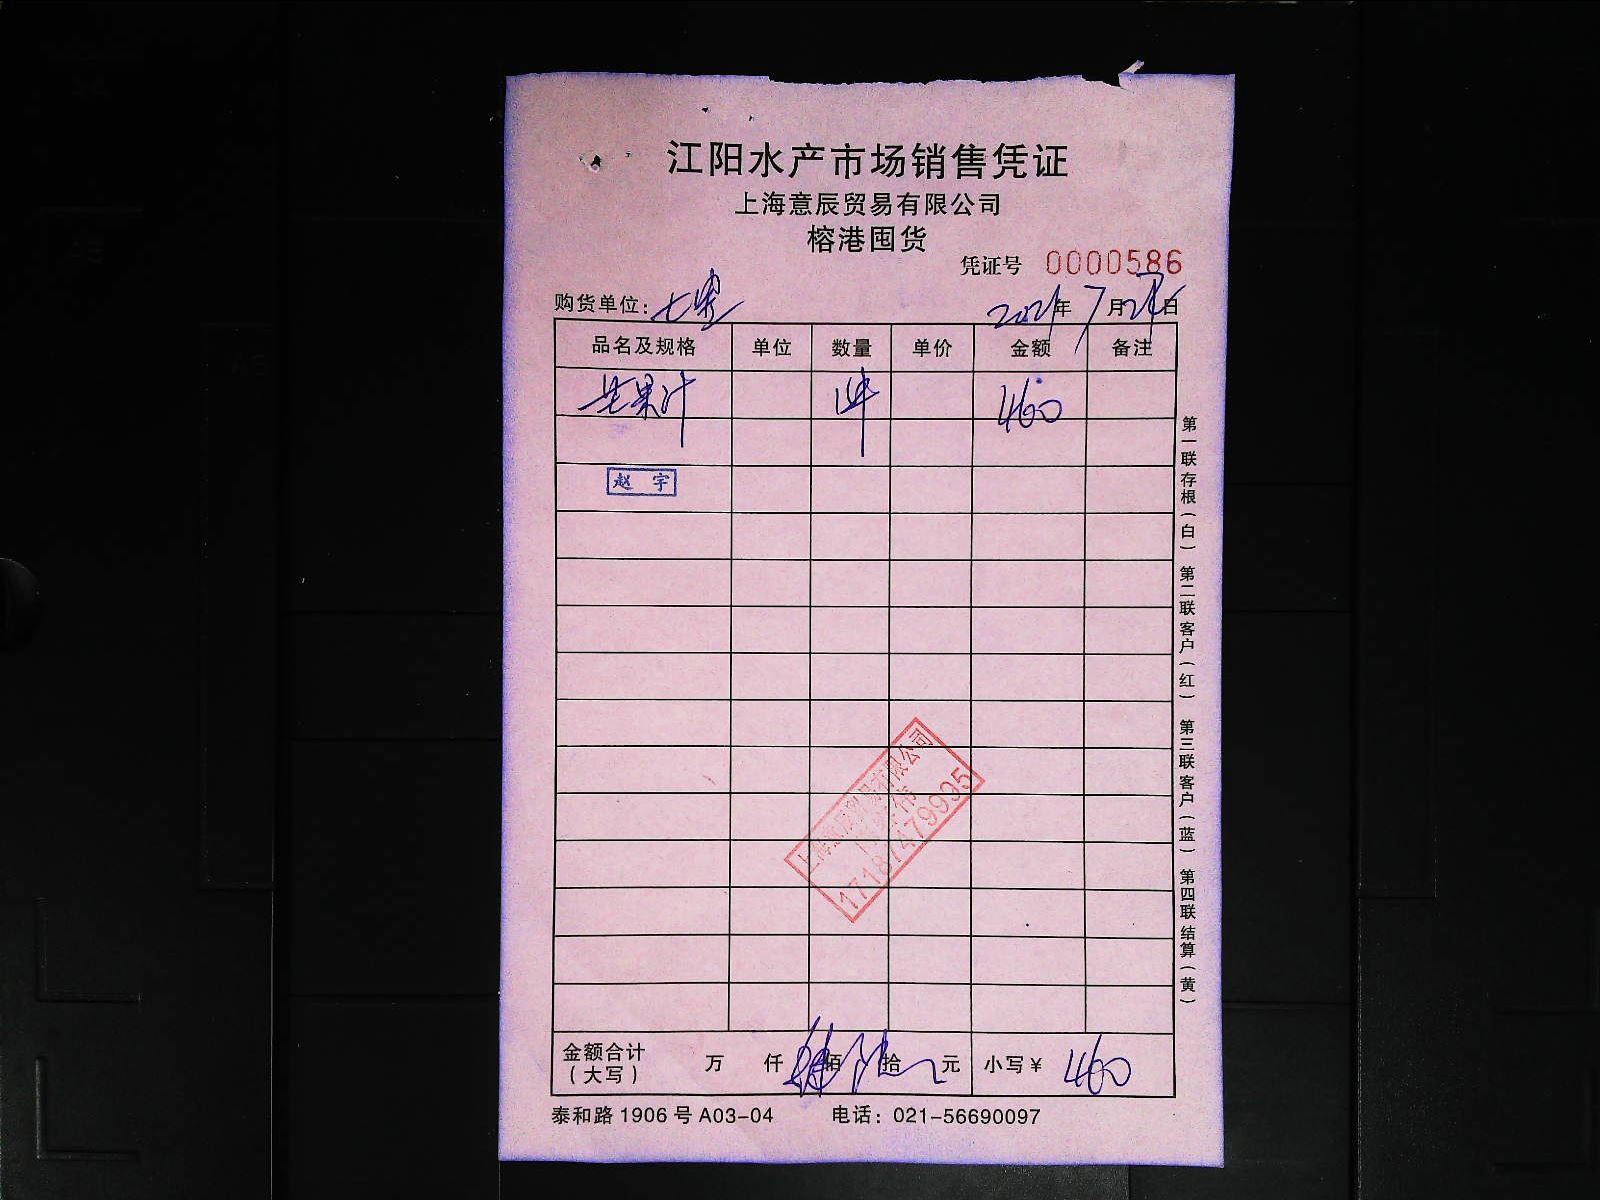 江阳水产市场销售凭证
上海意辰贸易有限公司
榕港囤货
凭证号 0000586
购货单位: 七宝 2021年 7月 日
品名及规格 单位 数量 单价 金额 备注
芒果汁 1件 460
赵 宇
上海意辰贸易有限公司
17187479995
金额合计(大写) 万 仟 肆佰陆拾 元 小写¥ 460
泰和路1906号A03-04 电话: 021-56690097
第一联存根(白) 第二联客户(红) 第三联客户(蓝) 第四联结算(黄)